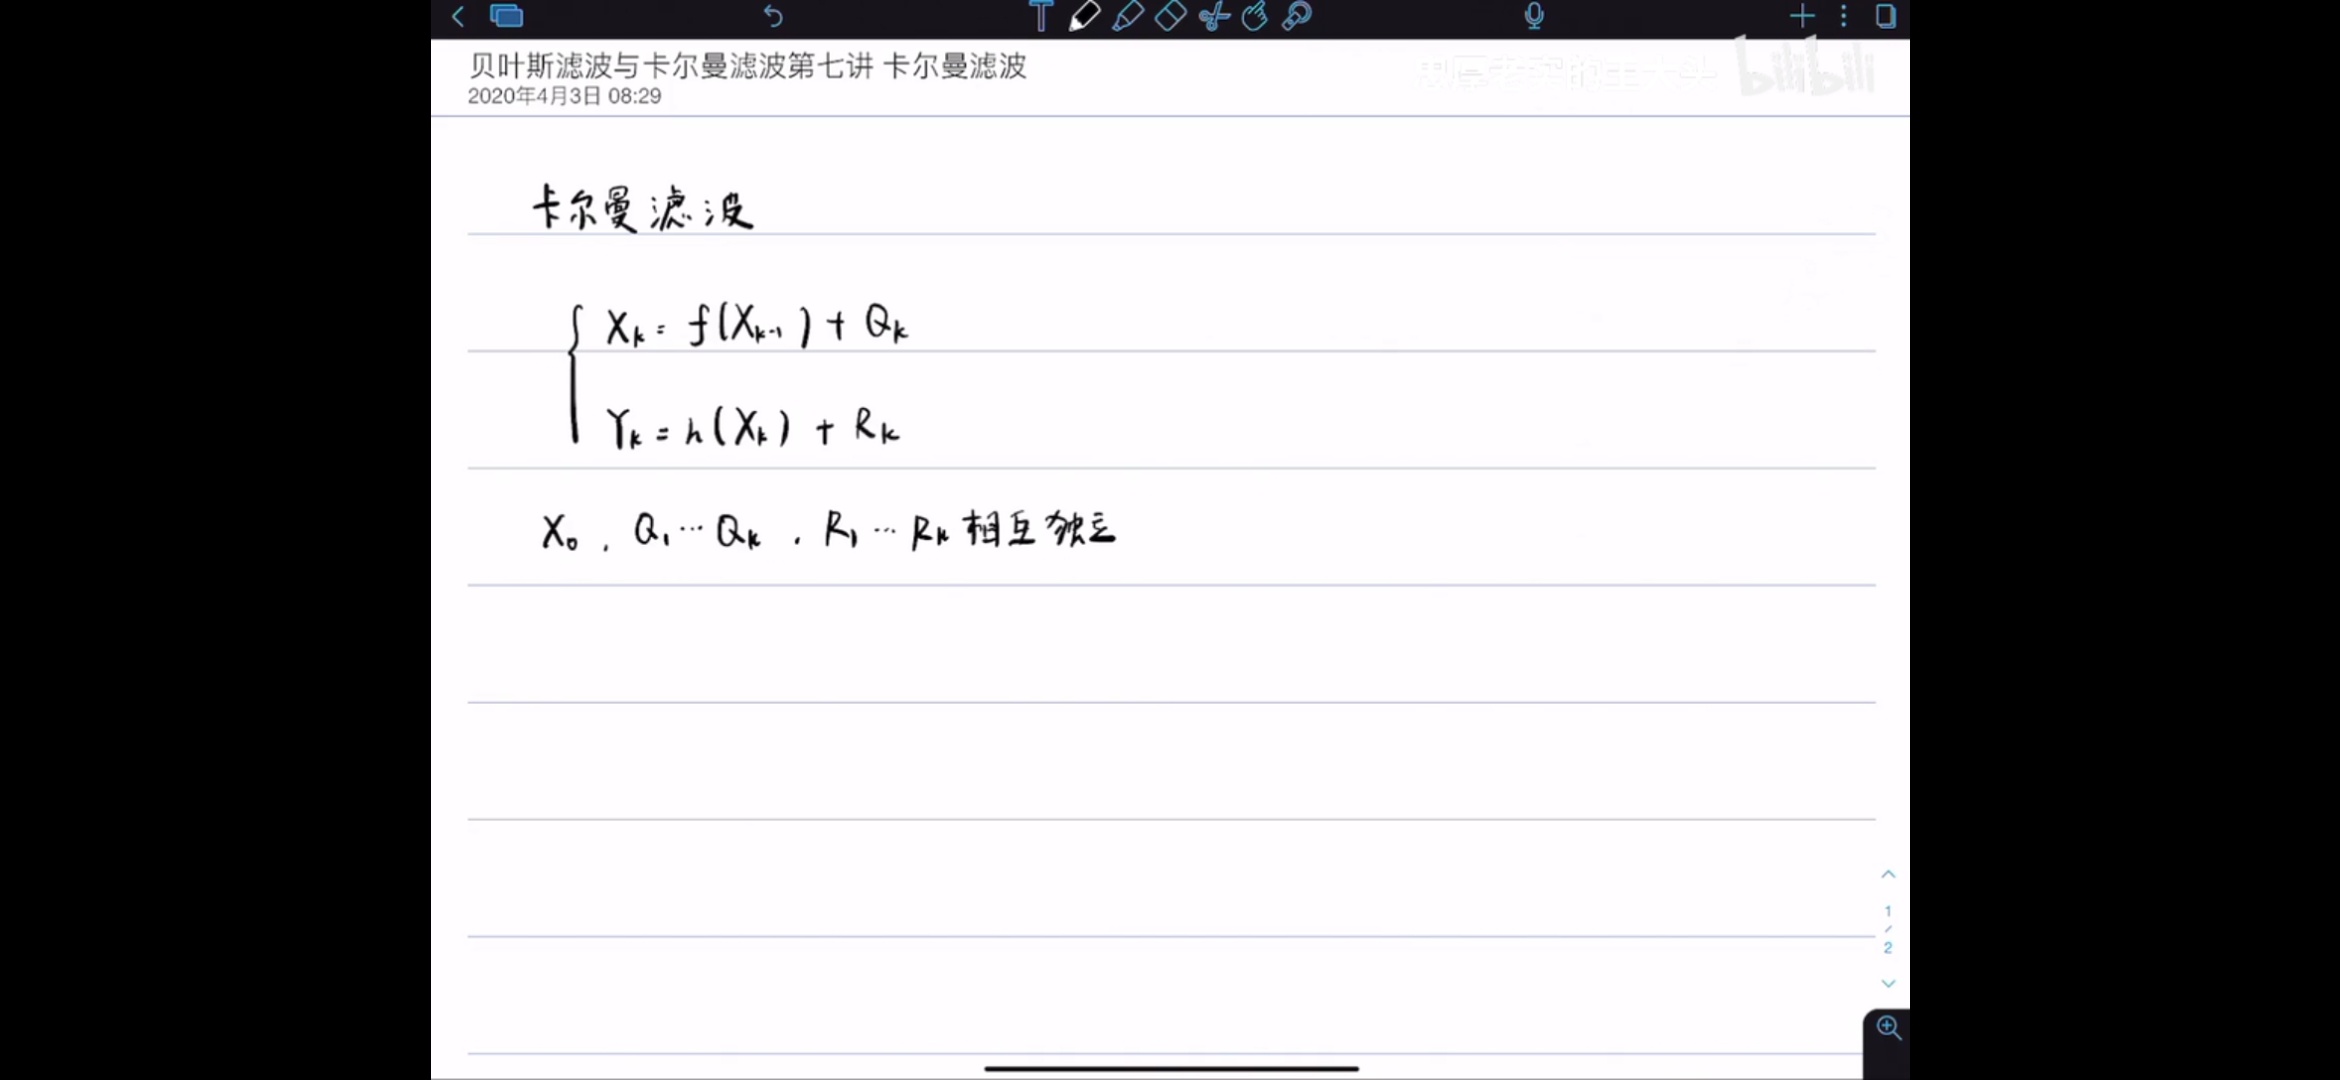 贝叶斯滤波与卡尔曼滤波第七讲 卡尔曼滤波
2020年4月3日 08:29
bilibili
卡尔曼滤波
X_k = f(X_{k-1}) + Q_k
Y_k = h(X_k) + R_k
X_0 , Q_1 ⋯ Q_k , R_1 ⋯ R_k 相互独立
1
/
2